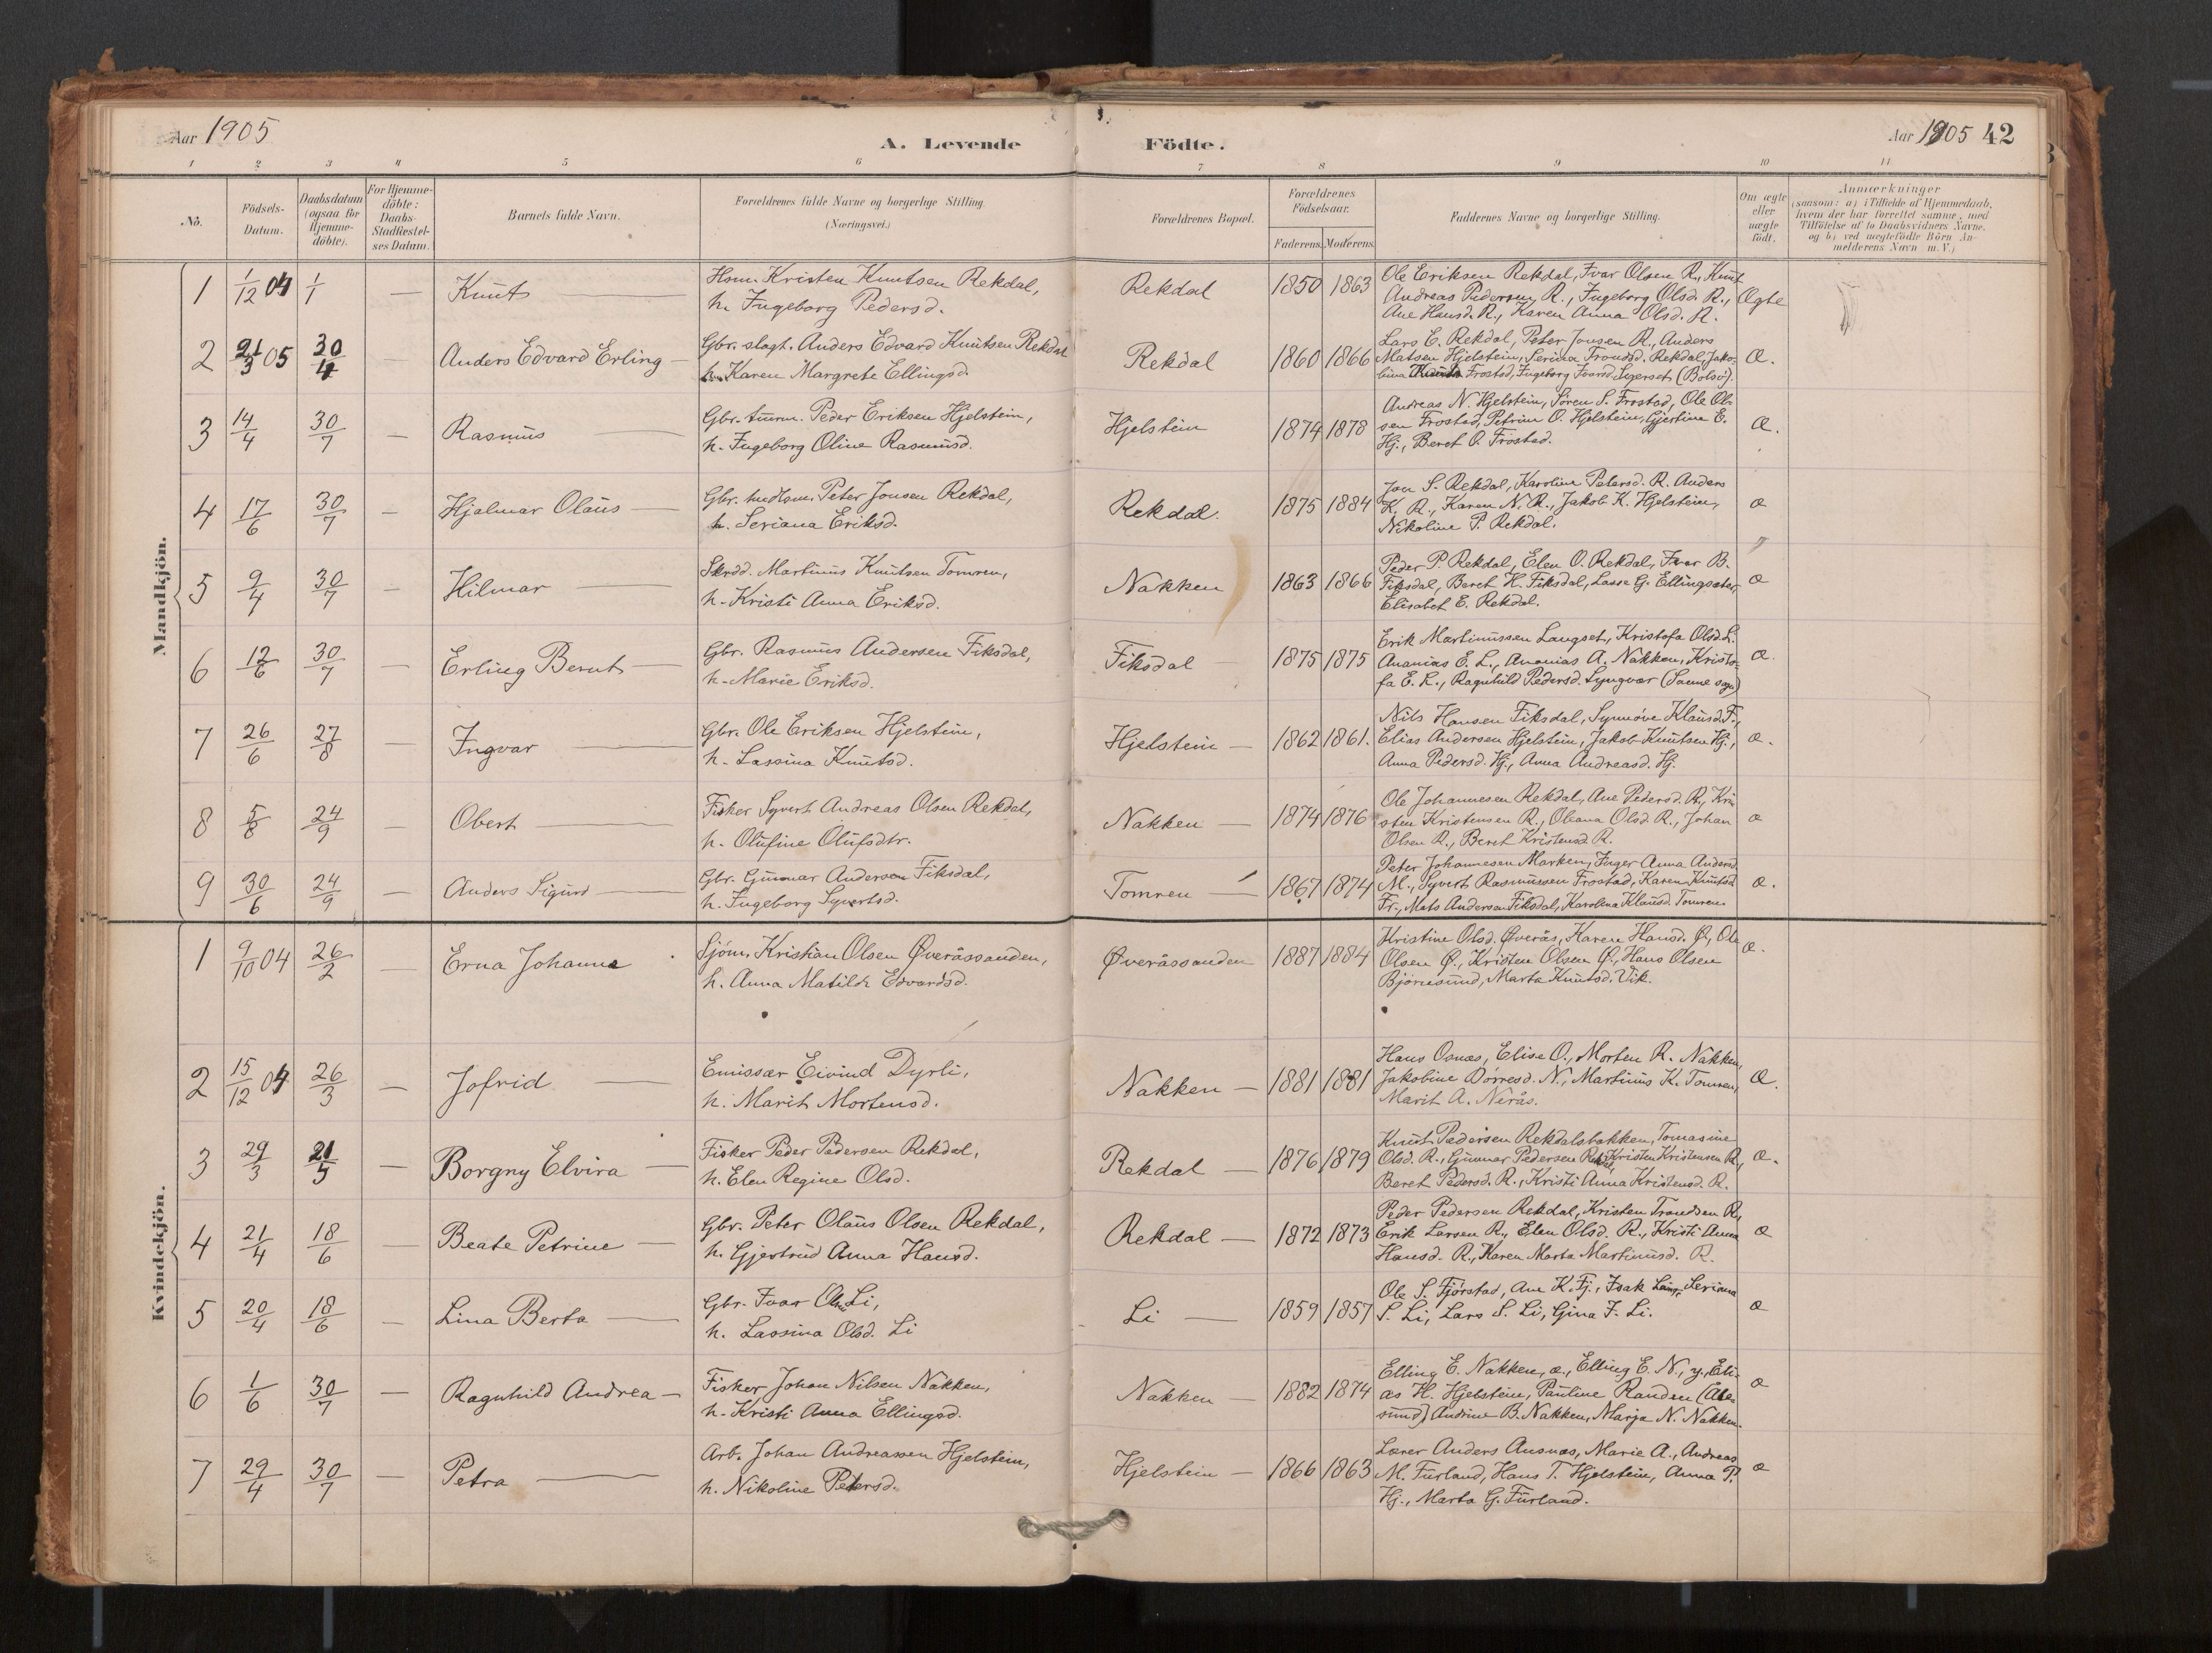 Aar 1905
A. Levende Födte.
Aar 1905 42
1 2 3 4 5 6 7 8 9 10 11
No.
Födsels-
Datum.
Daabsdatum
(ogsaa for
Hjemme-
döbte).
For Hjemme-
döbte:
Daabs-
Stadfæstel-
ses Datum.
Barnets fulde Navn.
Forældrenes fulde Navne og borgerlige Stilling.
(Næringsvei.)
Forældrenes Bopæl.
Forældrenes
Födselsaar.
Faderens. Moderens.
Faddernes Navne og borgerlige Stilling.
Om ægte
eller
uægte
födt.
Anmærkninger
(saasom: a) i Tilfælde af Hjemmedaab,
hvem der har forrettet samme, med
Tilföielse af to Daabsvidners Navne.
og b) ved uægtefödte Börn An-
melderens Navn m. V.)
Mandkjön.
1 1/12 04 1/1 — Knut
Hsm. Kristen Knutsen Rekdal,
h. Ingeborg Pedersd.
Rekdal 1850 1863
Ole Eriksen Rekdal, Ivar Olsen R., Knut
Andreas Pedersen R., Ingeborg Olsd. R.,
Ane Hansd. R., Karen Anna Olsd. R.
Ægte
2 21/3 05 30/4 — Anders Edvard Erling —
Gbr. slagt. Anders Edvard Knutsen Rekdal
h. Karen Margrete Ellingsd.
Rekdal 1860 1866
Lars E. Rekdal, Peter Jonsen R., Anders
Matsen Hjelstein, Serina Trondsd. Rekdal, Jako-
bina Frostad, Ingeborg Ivarsd. (Bolsö).
Æ.
3 14/4 30/7 — Rasmus
Gbr. tømm. Peder Eriksen Hjelstein,
h. Ingeborg Oline Rasmusd.
Hjelstein 1874 1878
Andreas N. Hjelstein, Sören S. Frostad, Ole Ol-
sen Frostad, Petrine O. Hjelstein, Gjertine E.
Hj., Beret O. Frostad.
Æ.
4 17/6 30/7 — Hjalmar Olaus —
Gbr. Peter Jonsen Rekdal,
h. Seriana Eriksd.
Rekdal. 1875 1884
Jon S. Rekdal, Karoline Petersd. R. Anders
K. R., Karen N. R., Jakob K. Hjelstein,
Nikoline P. Rekdal.
æ
5 9/4 30/7 — Hilmar
Skrdd. Martinus Knutsen Tomren,
h. Kristi Anna Eriksd.
Nakken 1863 1866
Peder P Rekdal, Elen O. Rekdal, Ivar B.
Fiksdal, Beret K. Fiksdal, Lasse G. Ellingsæter,
Elisabet E. Rekdal.
æ
6 12/6 30/7 — Erling Bernt —
Gbr. Rasmus Andersen Fiksdal,
h. Marie Eriksd.
Fiksdal 1875 1875
Erik Martinussen Langset, Kristofa Olsd. L.
Ananias E. L., Ananias A. Nakken, Kristo-
fa E. L., Ragnhild Pedersd. Lyngvær (Samme sogn)
æ.
7 26/6 27/8 — Ingvar
Gbr. Ole Eriksen Hjelstein,
h. Lassina Knutsd.
Hjelstein — 1862 1861.
Nils Hansen Fiksdal, Synnöve Klausd. F.,
Elias Andersen Hjelstein, Jakob Knutsen Hj.,
Anna Pedersd. Hj., Anna Andreasd. Hj.
æ.
8 5/8 24/9 — Obert
Fisker Syvert Andreas Olsen Rekdal,
h. Olufine Olufsdtr.
Nakken — 1874 1876
Ole Johannesen Rekdal, Ane Pedersd. R., Kri-
sten Kristensen R., Oleana Olsd. R., Johan
Olsen R., Beret Kristensd. R.
æ
9 30/6 24/9 — Anders Sigurd
Gbr. Gunnar Andersen Fiksdal,
h. Ingeborg Syvertsd.
Tomren — 1867 1874
Peter Johannesen Marken, Inger Anna Andersd.
M., Syvert Rasmussen Frostad, Karen Knutsd.
Fr., Mats Andersen Fiksdal, Karolina Klausd. Tomren.
æ.
Kvindekjön.
1 9/10 04 26/2 — Erna Johanne
Sjöm. Kristian Olsen Øveråssanden,
h. Anna Matilde Edvardsd.
Øveråssanden 1887 1884
Kristine Olsd. Øverås, Karen Hansd. Ø., Ole
Olsen Ø., Kristen Olsen Ø., Hans Olsen
Björnesund, Marta Knutsd. Vik.
æ.
2 15/12 04 26/3 — Jofrid
Emissær Eivind Dyrli,
h. Marit Mortensd.
Nakken — 1881 1881
Hans Osnæs, Elise O., Morten R. Nakken,
Jakobine Dörresd. N., Martinus K. Tomren,
Marit A. Nerås.
Æ.
3 29/3 21/5 — Borgny Elvira —
Fisker Peder Pedersen Rekdal,
h. Elen Regine Olsd.
Rekdal — 1876 1879
Knut Pedersen Rekdalsbakken, Tomasine
Olsd. R., Gunnar Pedersen Rekdal, Kristen Kristensen R.,
Beret Pedersd. R., Kristi Anna Kristensd. R.
æ.
4 21/4 18/6 — Beate Petrine —
Gbr. Peter Olaus Olsen Rekdal,
h. Gjertrud Anna Hansd.
Rekdal — 1872 1873
Peder Pedersen Rekdal, Kristen Trondsen R.,
Erik Larsen R., Elen Olsd. R., Kristi Anna
Hansd. R., Karen Marta Martinusd. R.
æ
5 20/4 18/6 — Lina Berta —
Gbr. Ivar Olsen Li,
h. Lassina Olsd. Li
Li — 1859 1857
Ole S. Fjörstad, Ane K. Fj., Isak Seriana
S. Li, Lars S. Li, Gina I. Li.
æ
6 1/6 30/7 — Ragnhild Andrea —
Fisker Johan Nilsen Nakken,
h. Kristi Anna Ellingsd.
Nakken — 1882 1874
Elling E. Nakken, æ., Elling E. N., y., Eli-
as H. Hjelstein, Pauline Randen (Ale-
sund) Andrine B. Nakken, Marja N. Nakken.
æ
7 29/4 30/7 — Petra
Arb. Johan Andreassen Hjelstein,
h. Nikoline Petersd.
Hjelstein — 1866 1863
Lærer Anders Ausnæs, Marie A., Andreas
M. Furland, Hans T. Hjelstein, Anna P.
Hj., Marta G. Furland.
æ